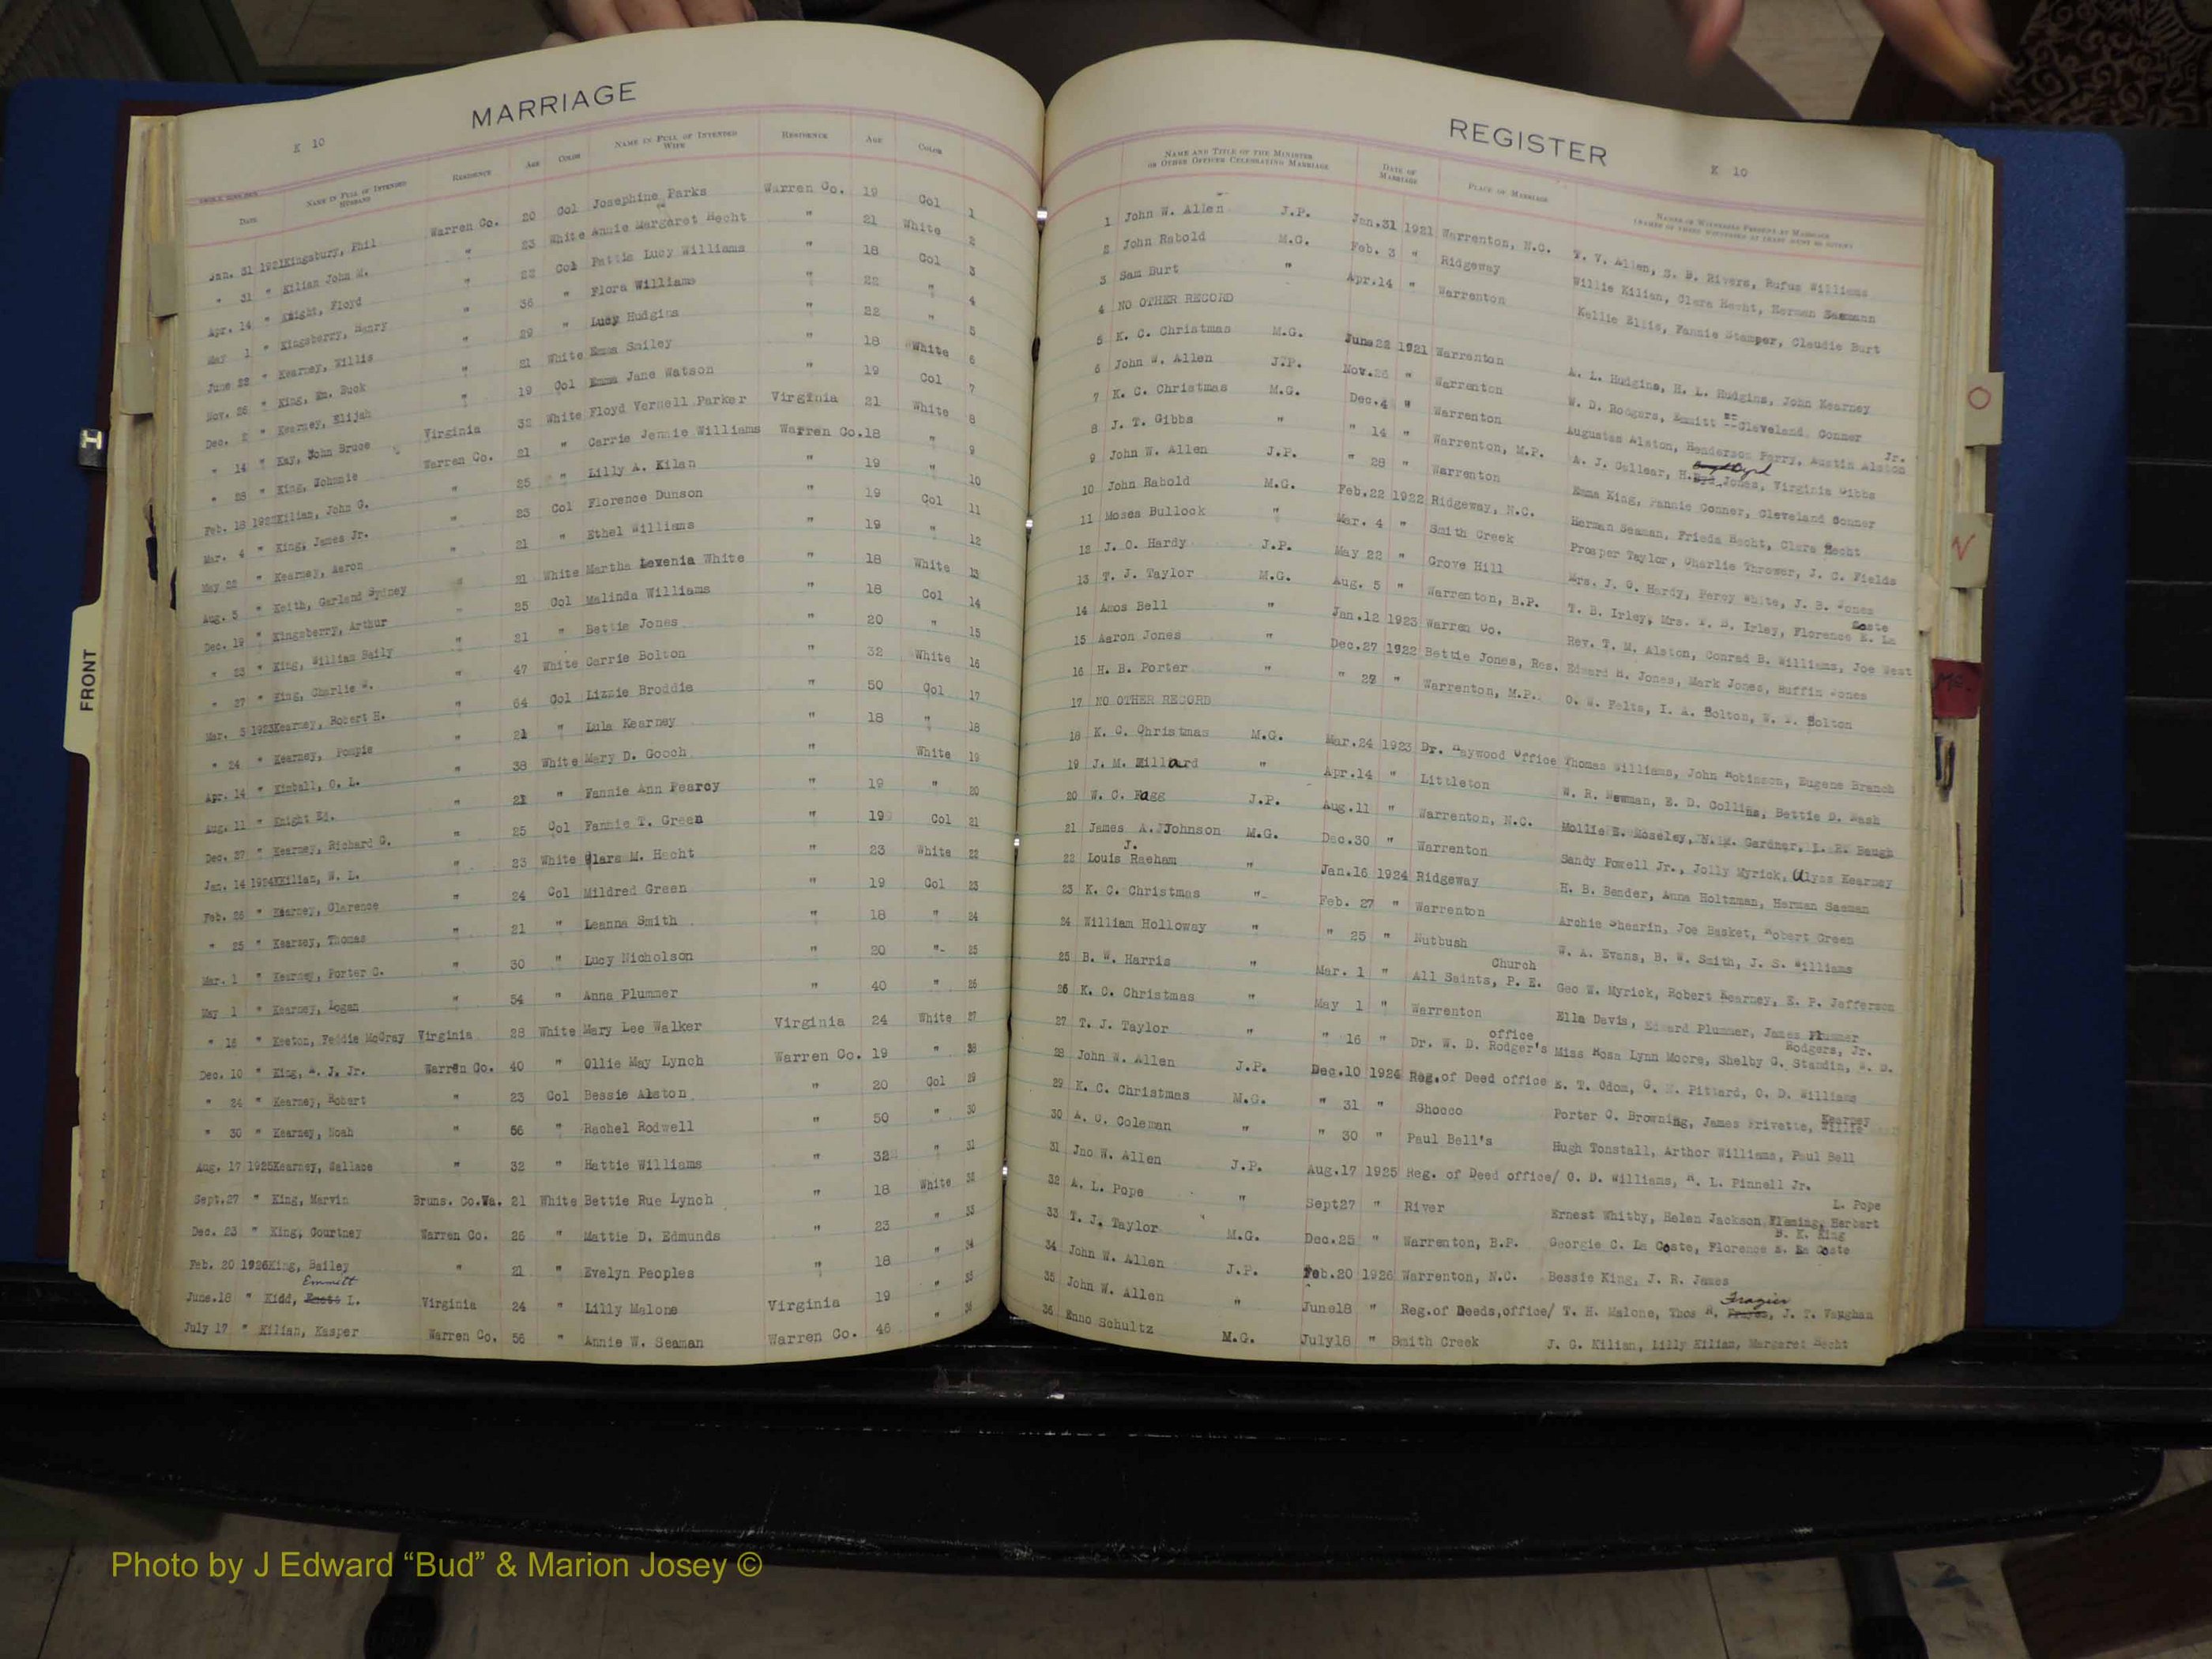 MARRIAGE
K 10
DATE NAME IN FULL OF INTENDED HUSBAND RESIDENCE AGE COLOR NAME IN FULL OF INTENDED WIFE RESIDENCE AGE COLOR
Jan. 31 1921 Kingsbury, Phil Warren Co. 20 Col Josephine Parks Warren Co. 19 Col 1
" 31 " Kilian John M. " 23 White Annie Margaret Hecht " 21 White 2
Apr. 14 " Knight, Floyd " 22 Col Pattie Lucy Williams " 18 Col 3
May 1 " Kingsberry, Henry " 36 " Flora Williams " 22 " 4
June 22 " Kearney, Willis " 29 " Lucy Hudgins " 22 " 5
Nov. 26 " King, Wm. Buck " 21 White Emma Smiley " 18 White 6
Dec. 2 " Kearney, Elijah " 19 Col Emma Jane Watson " 19 Col 7
" 14 " Kay, John Bruce Virginia 32 White Floyd Vernell Parker Virginia 21 White 8
" 28 " King, Johnnie Warren Co. 21 " Carrie Jennie Williams Warren Co. 18 " 9
Feb. 18 1922 Kilian, John G. " 25 " Lilly A. Kilan " 19 " 10
Mar. 4 " King, James Jr. " 23 Col Florence Dunson " 19 Col 11
May 22 " Kearney, Aaron " 21 " Ethel Williams " 19 " 12
Aug. 5 " Keith, Garland Sydney " 21 White Martha Levenia White " 18 White 13
Dec. 19 " Kingsberry, Arthur " 25 Col Malinda Williams " 18 Col 14
" 23 " King, William Baily " 21 " Bettie Jones " 20 " 15
" 27 " King, Charlie W. " 47 White Carrie Bolton " 32 White 16
Mar. 3 1923 Kearney, Robert H. " 64 Col Lizzie Broddie " 50 Col 17
" 24 " Kearney, Pompie " 21 " Lula Kearney " 18 " 18
Apr. 14 " Kimball, O. L. " 38 White Mary D. Gooch " White 19
Aug. 11 " Knight Ed. " 21 " Fannie Ann Pearcy " 19 " 20
Dec. 27 " Kearney, Richard G. " 25 Col Fannie T. Green " 19 Col 21
Jan. 14 1924 Kilian, W. L. " 23 White Clara M. Hecht " 23 White 22
Feb. 26 " Kearney, Clarence " 24 Col Mildred Green " 19 Col 23
" 25 " Kearney, Thomas " 21 " Leanna Smith " 18 " 24
Mar. 1 " Kearney, Porter C. " 30 " Lucy Nicholson " 20 " 25
May 1 " Kearney, Logan " 54 " Anna Plummer " 40 " 26
" 16 " Keeton, Feddie McCray Virginia 28 White Mary Lee Walker Virginia 24 White 27
Dec. 10 " King, A. J. Jr. Warren Co. 40 " Ollie May Lynch Warren Co. 19 " 28
" 24 " Kearney, Robert " 23 Col Bessie Alston " 20 Col 29
" 30 " Kearney, Noah " 56 " Rachel Rodwell " 50 " 30
Aug. 17 1925 Kearney, Wallace " 32 " Hattie Williams " 32 " 31
Sept. 27 " King, Marvin Bruns. Co. Va. 21 White Bettie Rue Lynch " 18 White 32
Dec. 23 " King, Courtney Warren Co. 26 " Mattie D. Edmunds " 23 " 33
Feb. 20 1926 King, Bailey " 21 " Evelyn Peoples " 18 " 34
Emmett
June.18 " Kidd, L. Virginia 24 " Lilly Malone Virginia 19 " 35
July 17 " Kilian, Kasper Warren Co. 56 " Annie W. Seaman Warren Co. 46 " 36
REGISTER
K 10
NAME AND TITLE OF THE MINISTER OR OTHER OFFICER CELEBRATING MARRIAGE DATE OF MARRIAGE PLACE OF MARRIAGE NAMES OF WITNESSES PRESENT AT MARRIAGE
1 John W. Allen J.P. Jan.31 1921 Warrenton, N.C. T. V. Allen, S. B. Rivers, Rufus Williams
2 John Rabold M.G. Feb. 3 " Ridgeway Willie Kilian, Clara Hecht, Herman Seemann
3 Sam Burt " Apr.14 " Warrenton Kellie Ellis, Fannie Stamper, Claudie Burt
4 NO OTHER RECORD
5 K. C. Christmas M.G. June22 1921 Warrenton A. L. Hudgins, H. L. Hudgins, John Kearney
6 John W. Allen J.P. Nov.26 " Warrenton W. D. Rodgers, Emmitt Cleveland Conner
7 K. C. Christmas M.G. Dec.4 " Warrenton Augustus Alston, Henderson Perry, Austin Alston Jr.
8 J. T. Gibbs " " 14 " Warrenton, M.P. A. J. Cellear, H. Jones, Virginia Gibbs
9 John W. Allen J.P. " 28 " Warrenton Emma King, Fannie Conner, Cleveland Conner
10 John Rabold M.G. Feb.22 1922 Ridgeway, N.C. Herman Seaman, Frieda Hecht, Clara Hecht
11 Moses Bullock " Mar. 4 " Smith Creek Prosper Taylor, Charlie Thrower, J. C. Fields
12 J. O. Hardy J.P. May 22 " Grove Hill Mrs. J. O. Hardy, Percy White, J. B. Jones
13 T. J. Taylor M.G. Aug. 5 " Warrenton, B.P. T. B. Irley, Mrs. T. B. Irley, Florence E. La Coste
14 Amos Bell " Jan.12 1923 Warren Co. Rev. T. M. Alston, Conrad B. Williams, Joe West
15 Aaron Jones " Dec.27 1922 Bettie Jones, Res. Edward H. Jones, Mark Jones, Ruffin Jones
16 H. B. Porter " " 29 " Warrenton, M.P. O. W. Felts, I. A. Bolton, W. T. Bolton
17 NO OTHER RECORD
18 K. C. Christmas M.G. Mar.24 1923 Dr. Haywood Office Thomas Williams, John Robinson, Eugene Branch
19 J. M. Millard " Apr.14 " Littleton W. R. Newman, E. D. Collins, Bettie D. Nash
20 W. C. Fagg J.P. Aug.11 " Warrenton, N.C. Mollie E. Moseley, N. M. Gardner, L. R. Baugh
21 James A. Johnson M.G. Dec.30 " Warrenton Sandy Powell Jr., Jolly Myrick, Ulyss Kearney
J.
22 Louis Raeham " Jan.16 1924 Ridgeway H. B. Bender, Anna Holtzman, Herman Seaman
23 K. C. Christmas " Feb. 27 " Warrenton Archie Shearin, Joe Basket, Robert Green
24 William Holloway " " 25 " Nutbush W. A. Evans, B. W. Smith, J. S. Williams
Church
25 B. W. Harris " Mar. 1 " All Saints, P. E. Geo W. Myrick, Robert Kearney, E. P. Jefferson
26 K. C. Christmas " May 1 " Warrenton Ella Davis, Edward Plummer, James Plummer
office Rodgers, Jr.
27 T. J. Taylor " " 16 " Dr. W. D. Rodger's Miss Rosa Lynn Moore, Shelby G. Standin, W. D.
28 John W. Allen J.P. Dec.10 1924 Reg. of Deed office E. T. Odom, G. M. Pittard, O. D. Williams
29 K. C. Christmas M.G. " 31 " Shocco Porter C. Browning, James Privette, Kearney
30 A. G. Coleman " " 30 " Paul Bell's Hugh Tonstall, Arthor Williams, Paul Bell
31 Jno W. Allen J.P. Aug.17 1925 Reg. of Deed office/ O. D. Williams, R. L. Pinnell Jr.
L. Pope
32 A. L. Pope " Sept27 " River Ernest Whitby, Helen Jackson Fleming, Herbert
B. K. King
33 T. J. Taylor M.G. Dec.25 " Warrenton, B.P. Georgie C. La Coste, Florence E. La Coste
34 John W. Allen J.P. Feb.20 1926 Warrenton, N.C. Bessie King, J. R. James
Frazier
35 John W. Allen " June18 " Reg.of Deeds,office/ T. H. Malone, Thos R. J. T. Vaughan
36 Enno Schultz M.G. July18 " Smith Creek J. G. Kilian, Lilly Kilian, Margaret Hecht
FRONT
O
N
Mc
Photo by J Edward “Bud” & Marion Josey ©